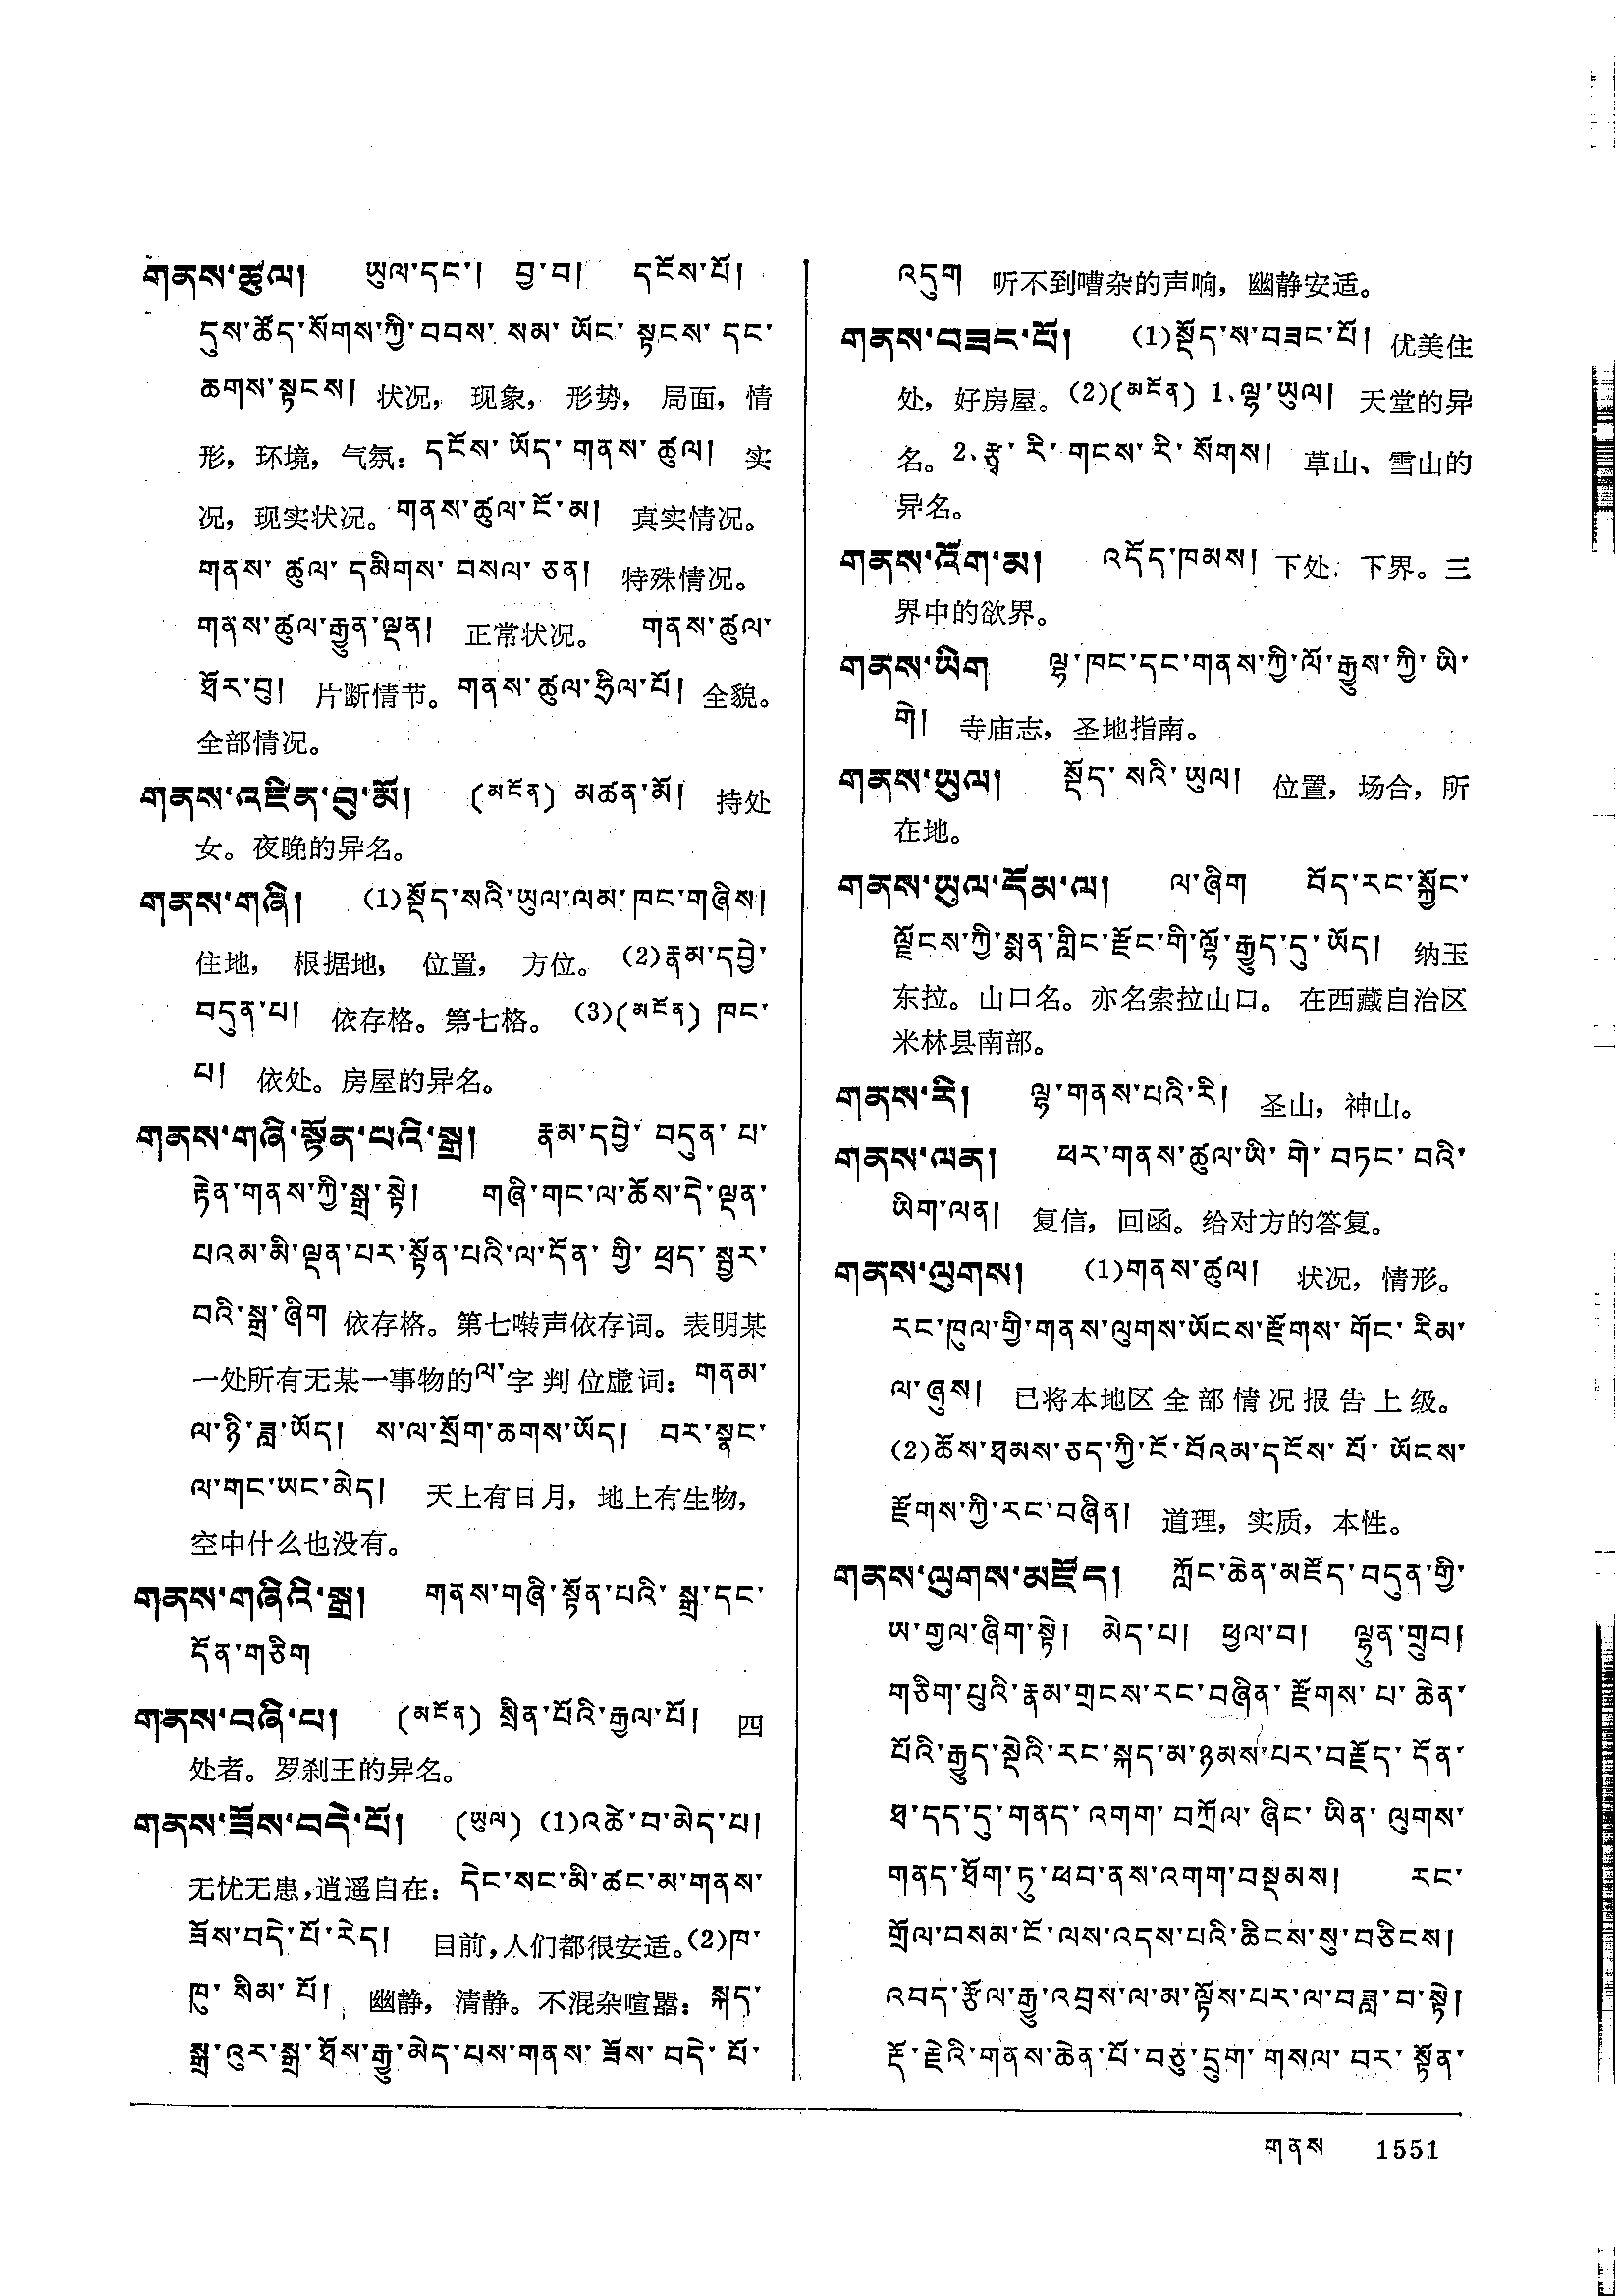 གནས་ཚུལ། ཡུལ་དང་། བྱ་བ། དངོས་པོ།
དུས་ཚོད་སོགས་ཀྱི་བབས་ སམ་ ཡོང་ སྟངས་ དང་
ཆགས་སྟངས། 状况，现象，形势，局面，情
形，环境，气氛：དངོས་ ཡོད་ གནས་ ཚུལ། 实
况，现实状况。གནས་ཚུལ་ངོ་མ། 真实情况。
གནས་ ཚུལ་ དམིགས་ བསལ་ ཅན། 特殊情况。
གནས་ཚུལ་རྒྱུན་ལྡན། 正常状况。 གནས་ཚུལ་
ཐོར་བུ། 片断情节。གནས་ཚུལ་ཧྲིལ་པོ། 全貌。
全部情况。
གནས་འཛིན་བུ་མོ། (མངོན) མཚན་མོ། 持处
女。夜晚的异名。
གནས་གཞི། (1)སྡོད་སའི་ཡུལ་ལམ་ཁང་གཞིས།
住地，根据地，位置，方位。(2)རྣམ་དབྱེ་
བདུན་པ། 依存格。第七格。(3)(མངོན) ཁང་
པ། 依处。房屋的异名。
གནས་གཞི་སྟོན་པའི་སྒྲ། རྣམ་དབྱེ་ བདུན་ པ་
རྟེན་གནས་ཀྱི་སྒྲ་སྟེ། གཞི་གང་ལ་ཆོས་དེ་ལྡན་
པའམ་མི་ལྡན་པར་སྟོན་པའི་ལ་དོན་ གྱི་ ཕྲད་ སྦྱར་
བའི་སྒྲ་ཞིག 依存格。第七啭声依存词。表明某
一处所有无某一事物的ལ་字判位虚词：གནམ་
ལ་ཉི་ཟླ་ཡོད། ས་ལ་སྲོག་ཆགས་ཡོད། བར་སྣང་
ལ་གང་ཡང་མེད། 天上有日月，地上有生物，
空中什么也没有。
གནས་གཞིའི་སྒྲ། གནས་གཞི་སྟོན་པའི་ སྒྲ་དང་
དོན་གཅིག
གནས་བཞི་པ། (མངོན) སྲིན་པོའི་རྒྱལ་པོ། 四
处者。罗刹王的异名。
གནས་ཟོས་བདེ་པོ། (ཡུལ) (1)འཚེ་བ་མེད་པ།
无忧无患，逍遥自在：དེང་སང་མི་ཚང་མ་གནས་
ཟོས་བདེ་པོ་རེད། 目前，人们都很安适。(2)ཁ་
ཁུ་ སིམ་ པོ། 幽静，清静。不混杂喧嚣：སྐད་
སྒྲ་འུར་སྒྲ་ཐོས་རྒྱུ་མེད་པས་གནས་ ཟོས་ བདེ་ པོ་
འདུག 听不到嘈杂的声响，幽静安适。
གནས་བཟང་པོ། (1)སྡོད་ས་བཟང་པོ། 优美住
处，好房屋。(2)(མངོན) 1.ལྷ་ཡུལ། 天堂的异
名。2.རྩྭ་ རི་ གངས་ རི་ སོགས། 草山、雪山的
异名。
གནས་འོག་མ། འདོད་ཁམས། 下处，下界。三
界中的欲界。
གནས་ཡིག ལྷ་ཁང་དང་གནས་ཀྱི་ལོ་རྒྱུས་ཀྱི་ ཡི་
གེ། 寺庙志，圣地指南。
གནས་ཡུལ། སྡོད་ སའི་ ཡུལ། 位置，场合，所
在地。
གནས་ཡུལ་དོམ་ལ། ལ་ཞིག བོད་རང་སྐྱོང་
ལྗོངས་ཀྱི་སྨན་གླིང་རྫོང་གི་ལྷོ་རྒྱུད་དུ་ཡོད། 纳玉
东拉。山口名。亦名索拉山口。在西藏自治区
米林县南部。
གནས་རི། ལྷ་གནས་པའི་རི། 圣山，神山。
གནས་ལན། ཕར་གནས་ཚུལ་ཡི་ གེ་ བཏང་ བའི་
ཡིག་ལན། 复信，回函。给对方的答复。
གནས་ལུགས། (1)གནས་ཚུལ། 状况，情形。
རང་ཁུལ་གྱི་གནས་ལུགས་ཡོངས་རྫོགས་ གོང་ རིམ་
ལ་ཞུས། 已将本地区全部情况报告上级。
(2)ཆོས་ཐམས་ཅད་ཀྱི་ངོ་བོའམ་དངོས་ པོ་ ཡོངས་
རྫོགས་ཀྱི་རང་བཞིན། 道理，实质，本性。
གནས་ལུགས་མཛོད། ཀློང་ཆེན་མཛོད་བདུན་གྱི་
ཡ་གྱལ་ཞིག་སྟེ། མེད་པ། ཕྱལ་བ། ལྷུན་གྲུབ།
གཅིག་པུའི་རྣམ་གྲངས་རང་བཞིན་ རྫོགས་ པ་ ཆེན་
པོའི་རྒྱུད་སྡེའི་རང་སྐད་མ་ཉམས་པར་བརྗོད་ དོན་
ཐ་དད་དུ་གནད་ འགག་ བཀྲོལ་ ཞིང་ ཡིན་ ལུགས་
གནད་ཐོག་ཏུ་ཕབ་ནས་འགག་བསྡམས། རང་
གྲོལ་བསམ་ངོ་ལས་འདས་པའི་ཆིངས་སུ་བཅིངས།
འབད་རྩོལ་རྒྱུ་འབྲས་ལ་མ་ལྟོས་པར་ལ་བཟླ་བ་སྟེ།
རྡོ་རྗེའི་གནས་ཆེན་པོ་བཅུ་དྲུག་ གསལ་ བར་ སྟོན་
གནས 1551